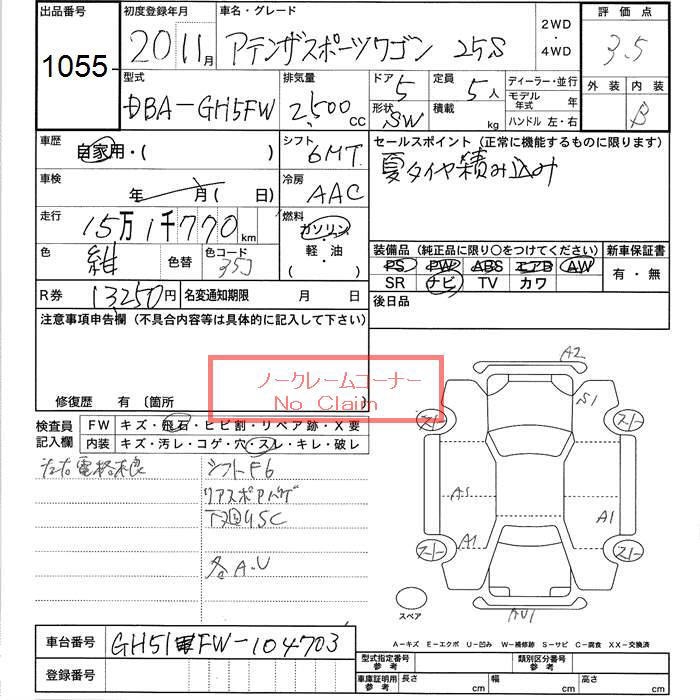 出品番号 初度登録年月 車名・グレード 2WD・4WD 評価点
1055 20 11月 アテンザスポーツワゴン 25S 3.5
型式 排気量 ドア 5 定員 5人 ディーラー・並行 外装 内装
DBA-GH5FW 2,500cc 形状 SW 積載 kg モデル年式 年 B
ハンドル 左・右
車歴 自家用・( ) シフト 6MT セールスポイント(正常に機能するものに限ります)
夏タイヤ積み込み
車検 年 月( 日) 冷房 AAC
走行 15万1千770km 燃料 ガソリン・軽・油・( )
色 紺 色替 色コード 35J
装備品(純正品に限り○をつけてください) 新車保証書
PS PW ABS エアB AW 有・無
SR ナビ TV カワ
R券 13250円 名変通知期限 月 日 後日品
注意事項申告欄(不具合内容等は具体的に記入して下さい)
ノークレームコーナー
No Claim
修復歴 有 〔箇所
検査員記入欄 FW キズ・飛石・ヒビ割・リペア跡・X要
内装 キズ・汚レ・コゲ・穴・スレ・キレ・破レ
左右電格不良 シフトF6
リアスポアバゲ
下廻りSC
各A.U
A2
S1
スト スト
A1 A1
A1
スト スト
AU1
スペア
A-キズ E-エクボ U-凹み W-補修跡 S-サビ C-腐食 XX-交換済
車台番号 GH5FW-104703
登録番号
型式指定番号 参考 類別区分番号 参考
車庫証明用 参考 長さ cm 幅 cm 高さ cm